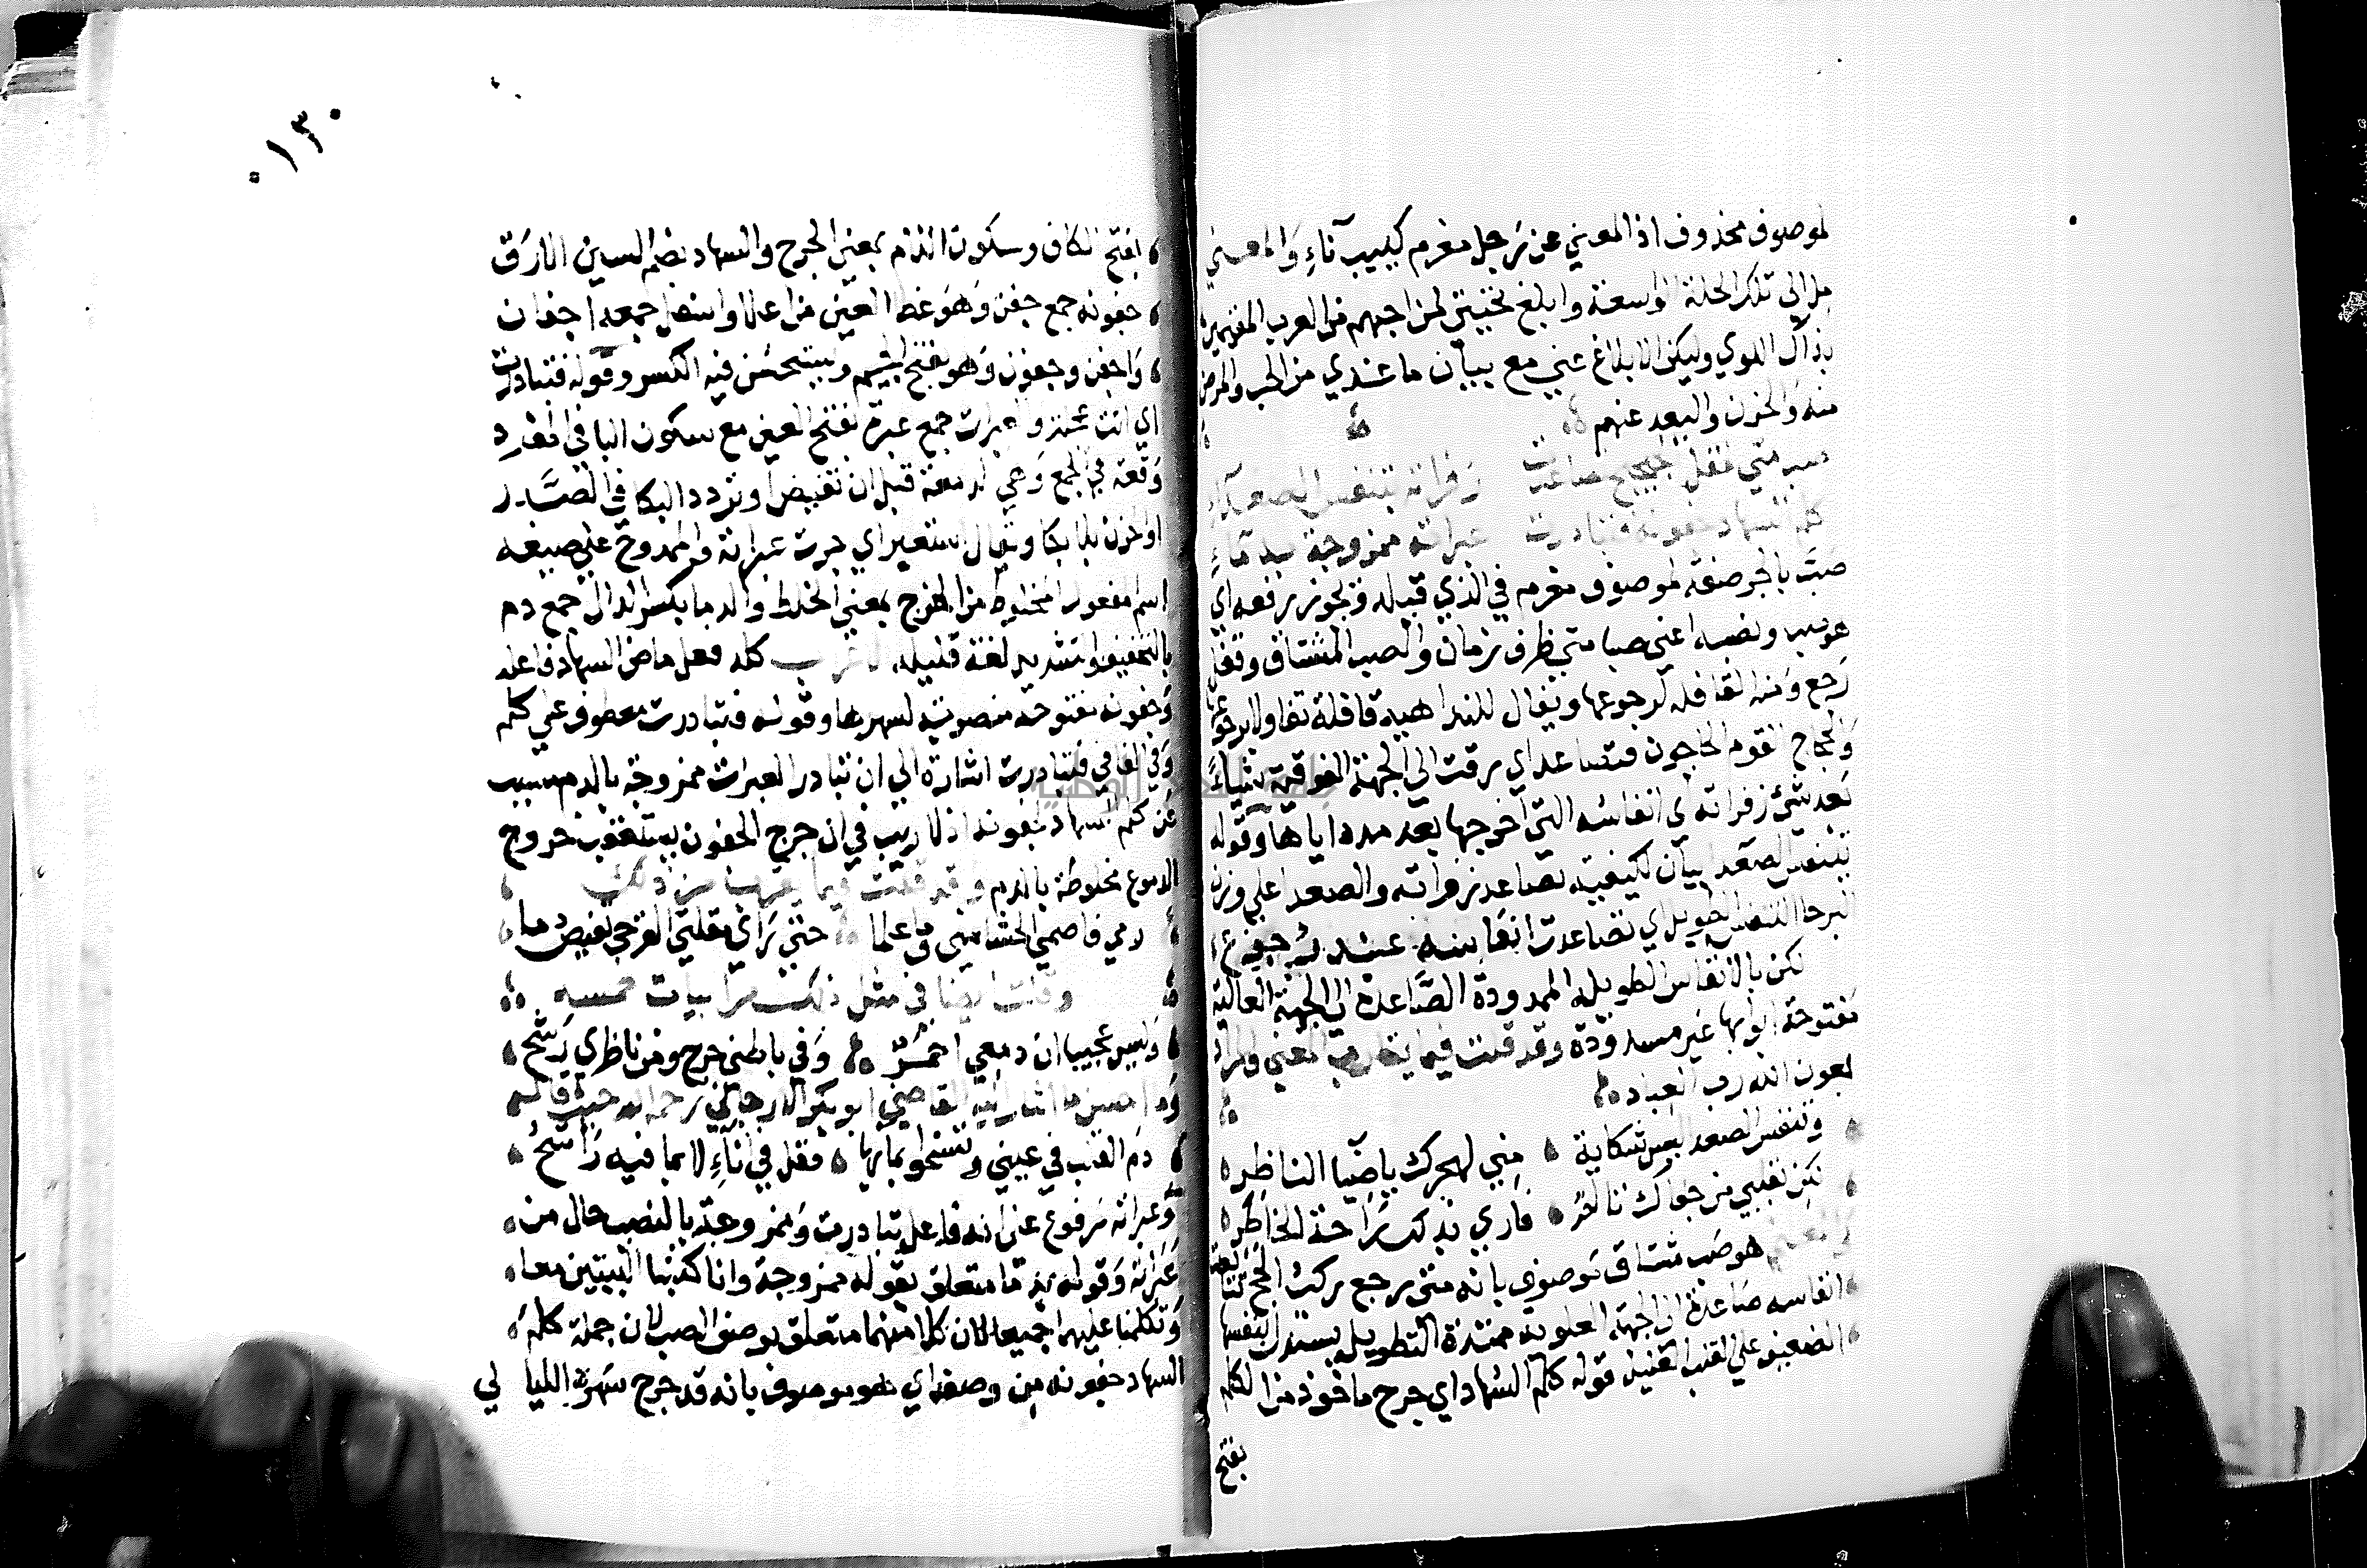 لموصوف محذوف اذ المعني عن رجل مغرم كييب آناء والمعني
مل الى تلك الحلة الواسعة وابلغ تحيتي لمن احبهم من العرب المقيمين
بذاك اللوي وليكن الابلاغ عني مع بيان ما عندي من الحب والمرض
منه والحزن والبعد عنهم
صب متي قفل الحجيج تصاعدت زفراته بتنفس الصعداء
كلم السهاد جفونه فتبادرت عبراته ممزوجة بدماء
صب بالجر صفة لموصوف مغرم في الذي قبله ويجوز رفعه اي
هو صب ونصبه اعني صبا متي ظرف زمان والصب المشتاق وقفل
رجع ومنه القافله لرجوعها ويقال للذاهبه قافلة تفاولا برجوعها
والحجاج القوم الحاجون فتصاعد اي رقت الي الجهة الفوقية شياءً
بعد شئ زفراته اي انفاسه التي اخرجها بعد مده اياها وقوله
بتنفس الصعدا بيان لكيفية تصاعد زفراته والصعدا علي وزن
البرحا التنفس الطويل اي تصاعدت انفاسه عند
لكن بالانفاس الطويله الممدودة الصاعدة الي الجهة العالية
مفتوحة ابوابها غير مسدودة وقد قلت فيما يقارب المعني والمراد
بعون الله رب العباد
وتنفس الصعدا ليس شكاية مني لهجرك يا ضيا الناظر
لكن بقلبي من جواك تالم فاري بذكرك راحة الخاطر
والمعني هو صب مشتاق موصوف بانه متي رجع ركب الحج
انفاسه صاعدة الي الجهة العلوية ممتدة التطويل يستدل بتنفسها
الضعيف علي القلب العنيد قوله كلم السهاد اي جرح ماخوذ من الكلم
بفتح
١٣٠
بفتح الكاف وسكون اللام بمعني الجرح والسهاد بضم السين الارق
جفونه جمع جفن وهو غطا العين من اعلا واسفل جمعه اجفان
واجفن وجفون وهو بفتح الجيم ويستحسن فيه الكسر وقوله فتبادرت
اي اتت عجلة والعبرات جمع عبرة بفتح العين مع سكون البا في المفرد
وفتحه في الجمع وهي الدمعة قبل ان تفيض او تردد البكا في الصدر
او الحزن بلا بكا ويقال استعبر اي جرت عبراته والممزوج علي صيغه
اسم المفعول المخلوط من المزج بمعني الخلط والدما بكسر الدال جمع دم
بالتخفيف والتشديد لغة قليله الاعراب كلم فعل ماض السهاد فاعله
وجفونه مفتوحه منصوبة لسهرها وقوله فتبادرت معطوف علي كلم
وفي الفا في فتبادرت اشارة الي ان تبادر العبرات ممزوجة بالدم مسبب
عن كلم السهاد لجفونه اذ لا ريب في ان جرح الجفون يستعقب خروج
الدموع مخلوطة بالدم وقد قلت فيما يقرب من ذلك
رمي فاصمي الحشا مني وما علما حتي راي مقلتي القرحي تفيض دما
وقلت ايضا في مثل ذلك من ابيات خمسه
وليس عجيبا ان دمعي احمر وفي باطني جرح ومن ناظري رشح
وما احسن ما اشار اليه القاضي ابو بكر الارجاني رحمه الله حيث قال
دم القلب في عيني وتسخو بمايها فقل في اناء لا بما فيه راشح
وعبراته مرفوع علي انه فاعل تبادرت وممزوجة بالنصب حال من
عبراته وقوله بدما متعلق بقوله ممزوجة وانا كتبنا البيتين معا
وتكلمنا عليهما جميعا لان كلا منهما متعلق بوصف الصب لان جملة كلم
السهاد جفونه من وصفه اي هو موصوف بانه قد جرح سهرة الليالي